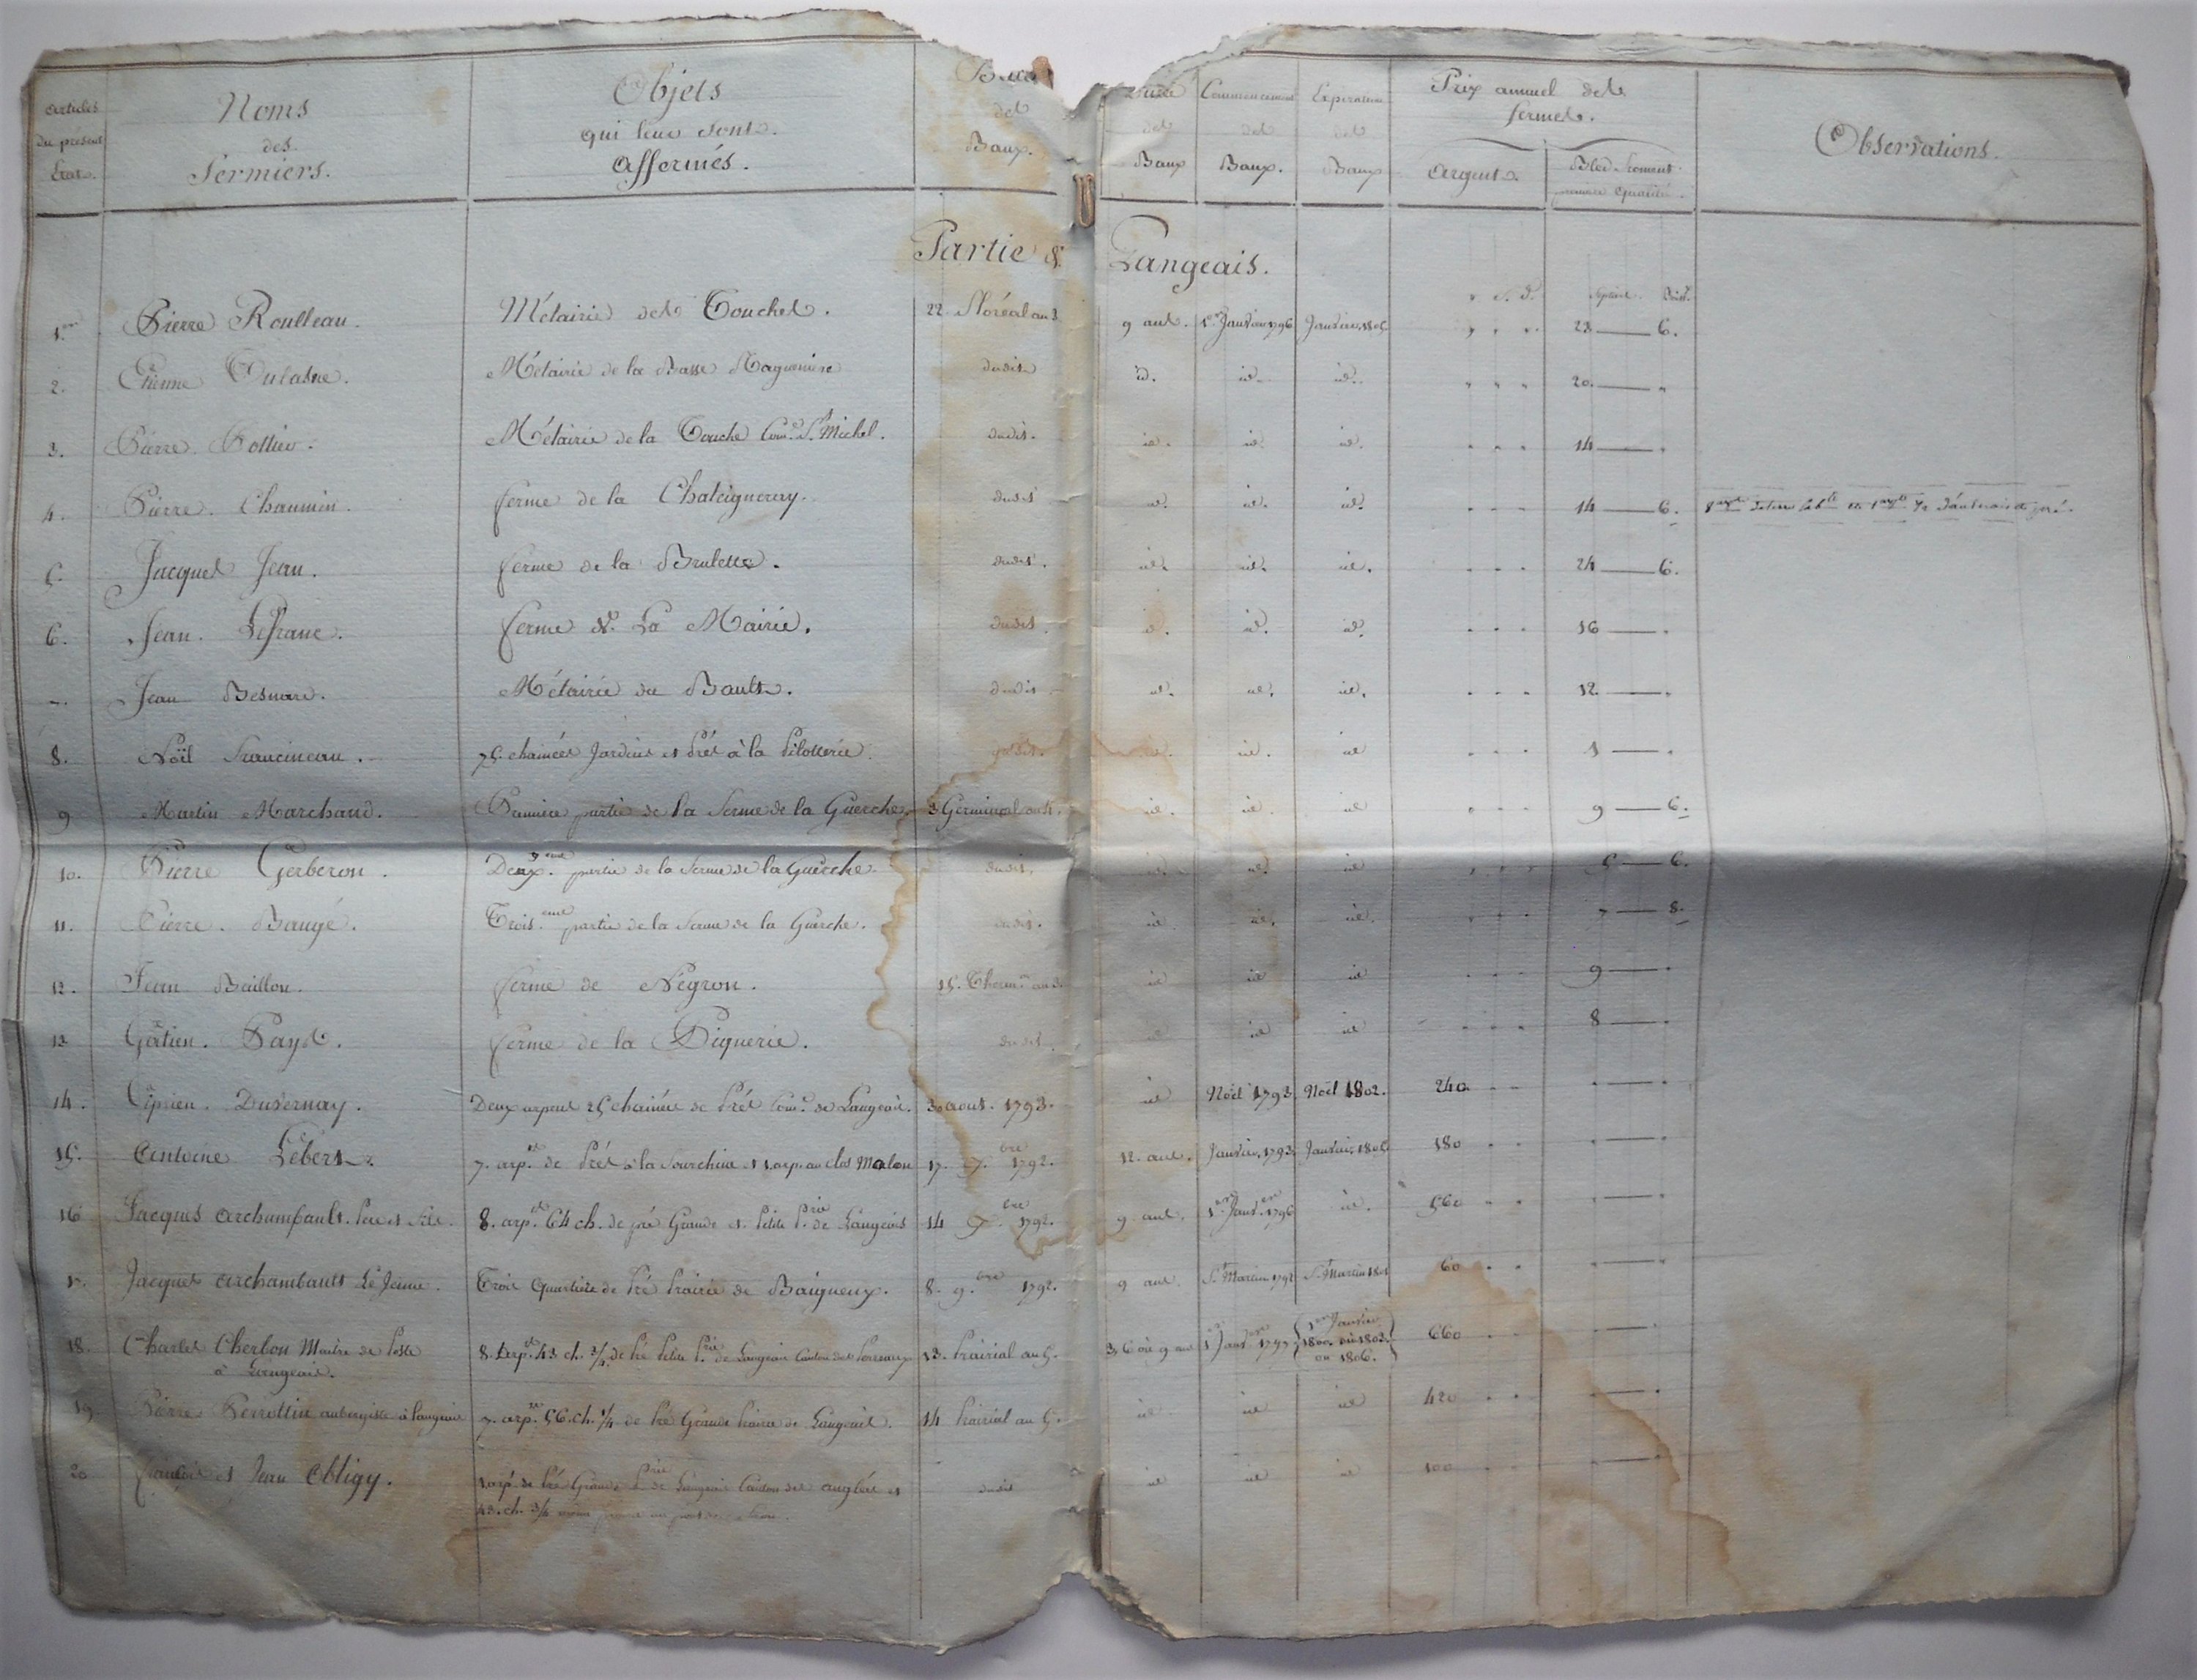 articles du présent Etat.
Noms des Fermiers.
Objets qui leur sont affermés.
des Baux.
Durée des Baux
Commencement des Baux.
Expiration des Baux
Prix annuel des fermes.
argent.
Bled froment première Qualité.
Observations.
Partie de Langeais.
1.er Pierre Roulleau. Métairie des Touches. 22 Floréal an 3 9 ans. 1.er Janvier 1796 Janvier 1805 23 — 6.
2. Etienne Dulasne. Métairie de la Basse dudit id. id. id. 20. — „
3. Pierre Métairie de la Touche Com.e S.t Michel. dudit. id. id. id. 14 — „
4. Pierre. Chaumin. ferme de la Chateigneray. dudit id. id. id. 14 — 6.
5. Jacques Jean. ferme de la Brulette. dudit. id. id. id. 24 — 6.
6. Jean. Lefranc. ferme de La Mairie. dudit id. id. id. 16 — „
Jean Besnard. Métairie du Bault. dudit id. id. id. 12. — „
8. Noël Francineau. 75. chainées Jardins et Prés à la Pilotterie. dudit. id. id. id 1 — „
9 Martin Marchand. Premiere partie de la ferme de la Guerche. 3 Germinal an 4. id. id id 9 — 6.
10. Pierre Gerberon. Deux.eme partie de la ferme de la Guerche. dudit. id. id. id 5 — 6.
11. Pierre. Baugé. Trois.eme partie de la ferme de la Guerche. dudit. id id. id. 7 — 8.
12. Jean Baillou. ferme de Négron. 15. Therm.r an 3. id id id 9 — „
13 Gatien. Pays. ferme de la Diquerie. dudit. id id id 8 — „
14. Ciprien. Duvernay. Deux arpens 25 chainées de Prés Com.e de Langeais. 30 aout. 1793. id Noël 1793. Noël 1802. 240
15. Antoine Lebert. 7. arp.s de Prés à la et 1. arp. au clos Malou 17. 7.bre 1792. 12. ans. Janvier 1793. Janvier 1805 180
16 Jacques Archambault. Pere et Fils. 8. arp.s 64 ch. de pré Grande et Petite P.rie de Langeais 14 9.bre 1792. 9 ans. 1.er Janv.er 1796 id. 560
17. Jacques Archambault Le Jeune. Trois Quartiers de Pré Prairie de Baigneux. 8. 9.bre 1792. 9 ans. S.t Martin 1792 S.t Martin 1801 60
18. Charles Cherbon Maitre de Poste à Langeais. 8. Arp.s 43 ch. 3/4 de Pré Petite P.rie de Langeais Canton des 13. Prairial an 5. 3, 6 ou 9 ans 1.er Janv.er 1797 1.er Janvier 1800. ou 1803. ou 1806. 660
19. Pierre Perrottin aubergiste à Langeais 7. arp.s 56. ch. 1/4 de Pré Grande Prairie de Langeais. 14 Prairial an 5. id id id 420
20 François et Jean Obligy. 1 arp. de Pré Grande P.rie de Langeais Canton des et 43. ch. 3/4 dudit id id id 100